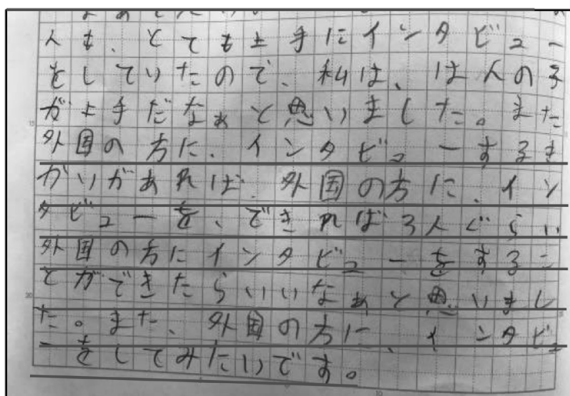 人も、とても上手にインタビュー
をしていたので、私は、は人の子
が上手だなぁと思いました。また
外国の方に、インタビューするき
かいがあれば、外国の方に、イン
タビューを、できれば3人ぐらい
外国の方にインタビューをするこ
とができたらいいなぁと思いまし
た。また、外国の方に、インタビュ
ーをしてみたいです。